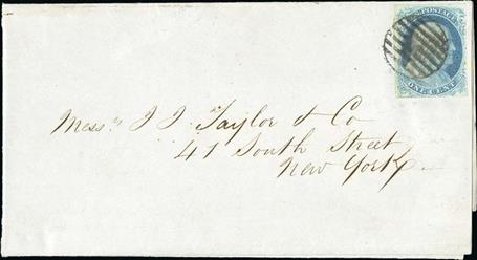 U.S. POSTAGE
ONE CENT
Mess^rs J J Taylor & Co
41 South Street
New York